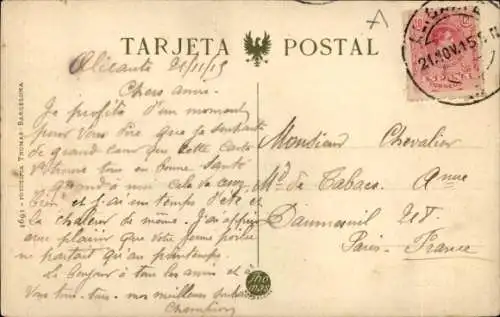 TARJETA POSTAL
ALICANTE
21.NOV.15
Alicante 21/11/15
Chers amis
Je profite d'un moment
pour vous dire que je souhaite
de grand cœur que cette carte
trouve tous en bonne santé
quand à moi cela va
bien et j'ai un temps d'été
la chaleur de même. J'ai appris
avec plaisir que votre
ne partait qu'au printemps.
Le bonjour à tous les amis et à
vous tous nos meilleurs souhaits
Champion
Monsieur Chevalier
Md de Tabacs. Anne
Daumesnil
Paris - France
1691 - FOTOTIPIA THOMAS - BARCELONA
Thomas